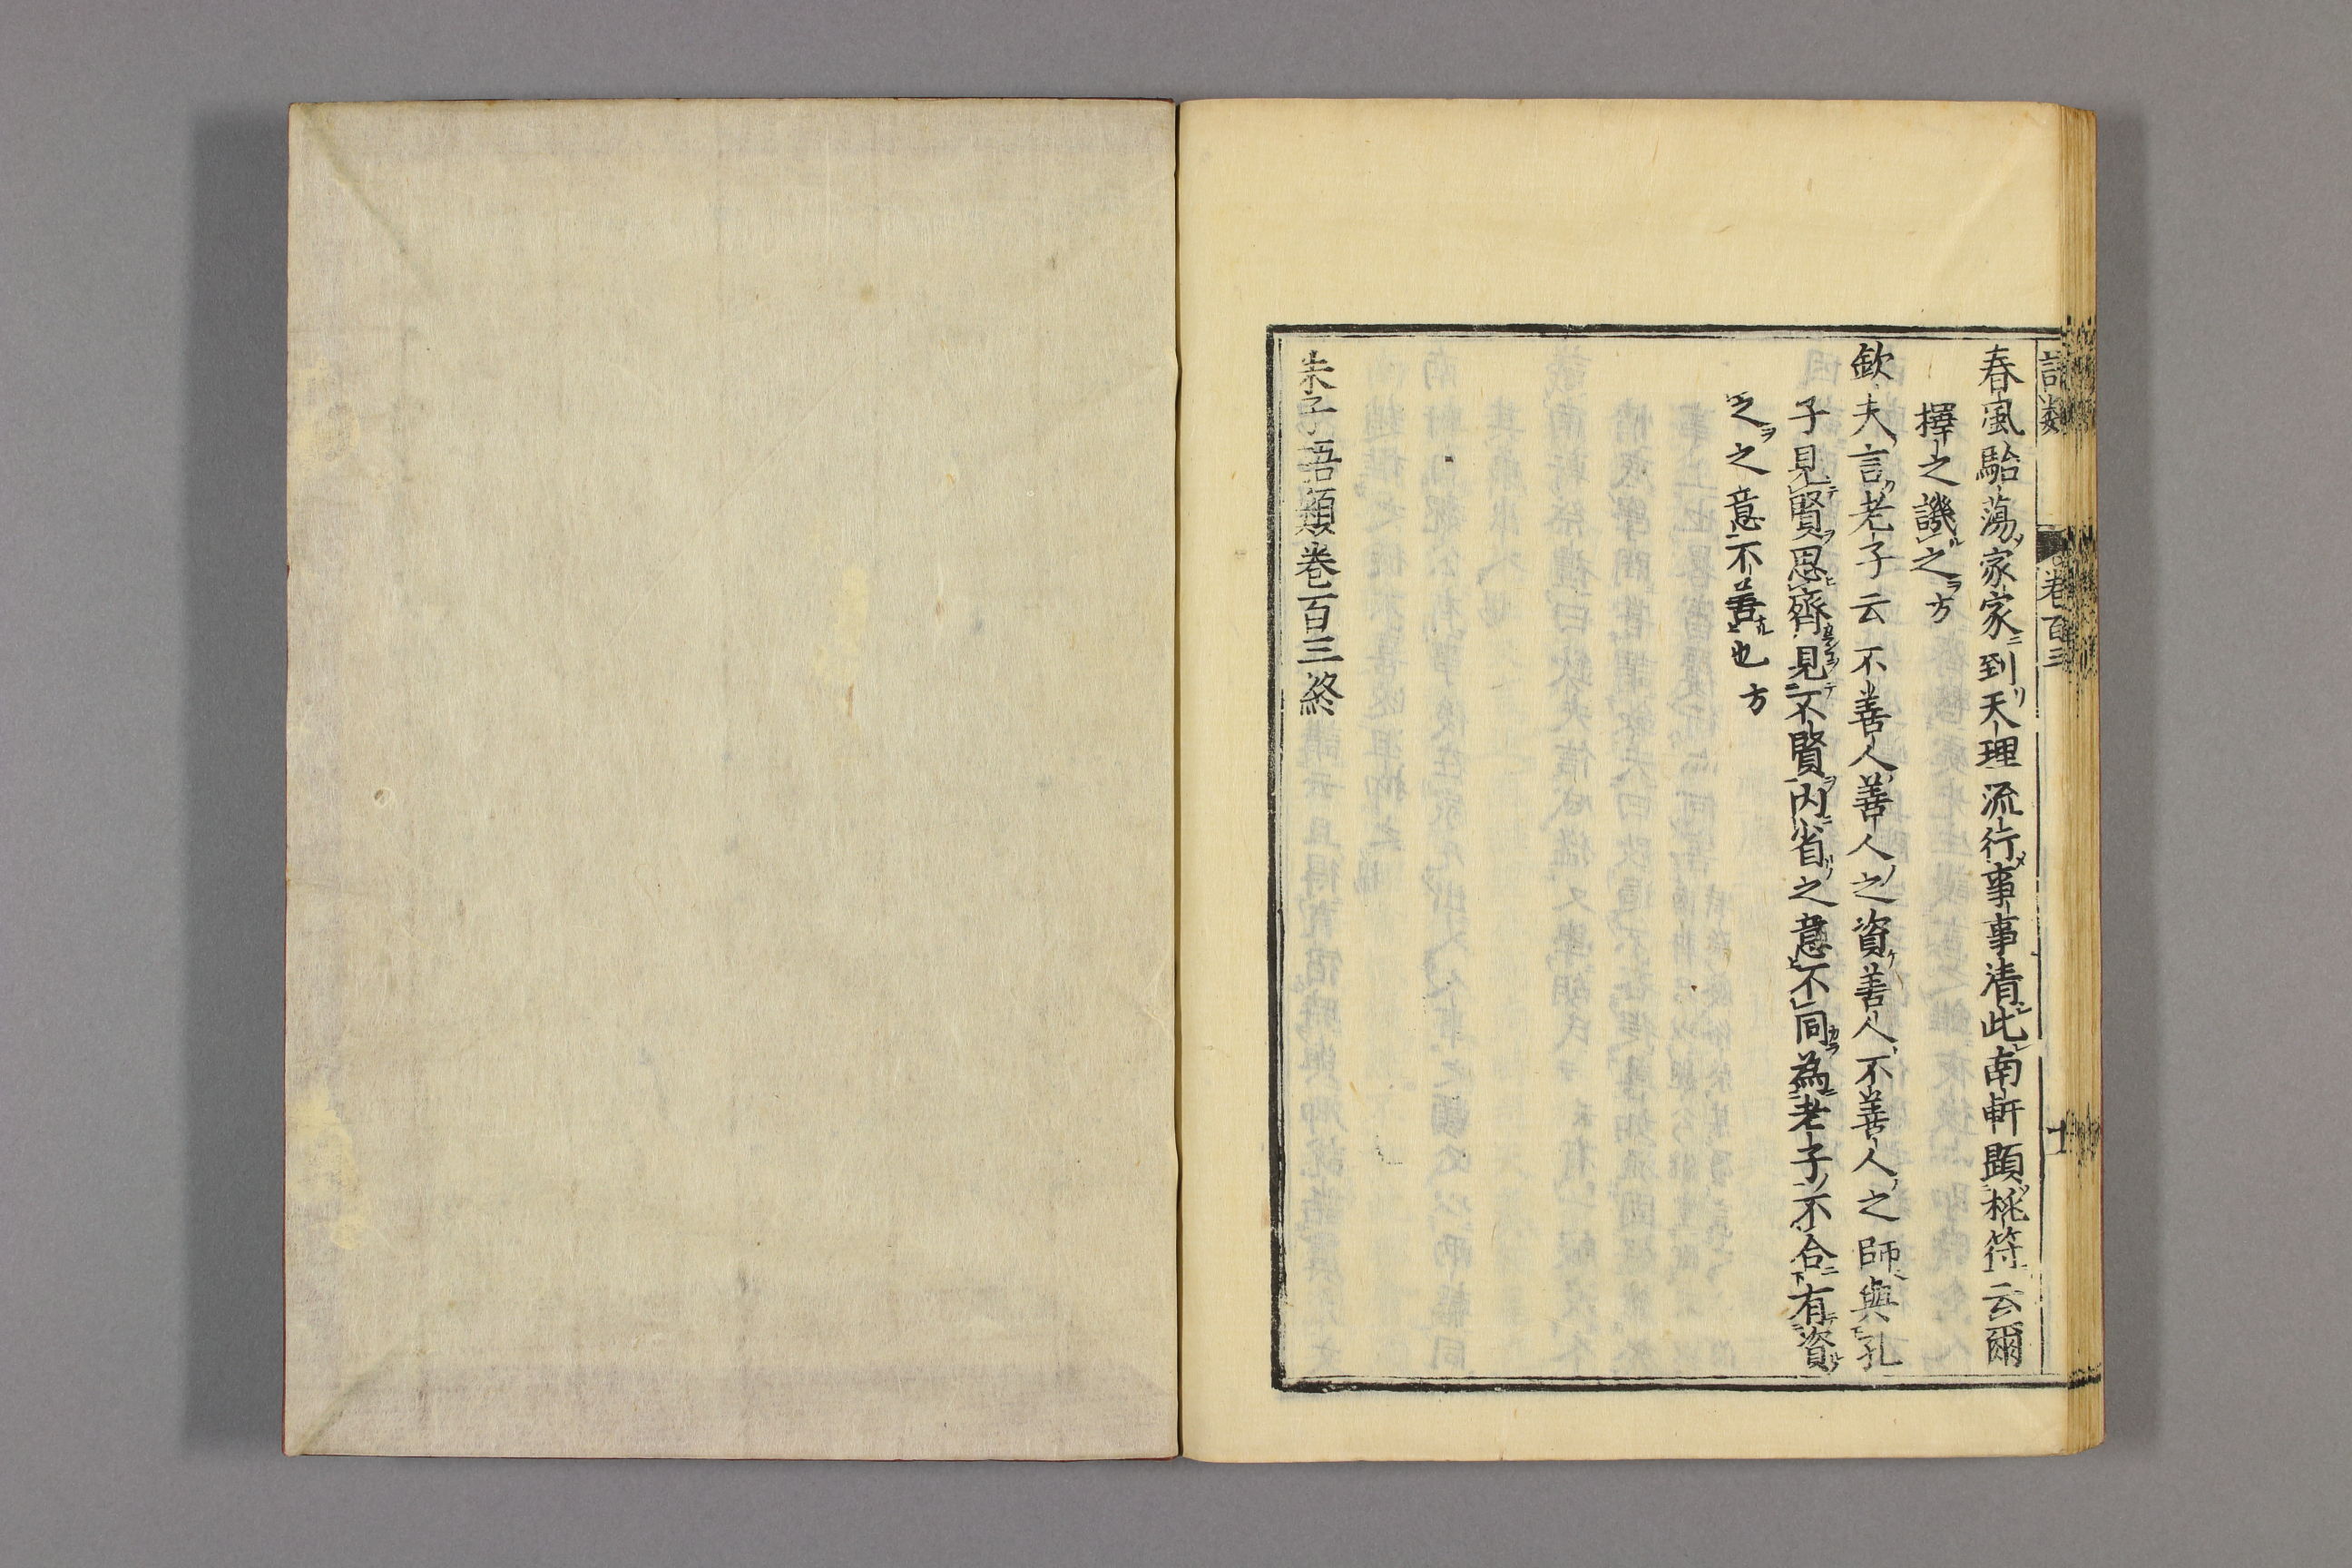 語類 卷百三 十
春風駘蕩家家到天理流行事事清此南軒題桃符云爾
擇之譏之方
欽夫言老子云不善人善人之資善人不善人之師與孔
子見賢思齊見不賢內省之意不同為老子不合有資
之之意不善也方
朱子語類卷百三終